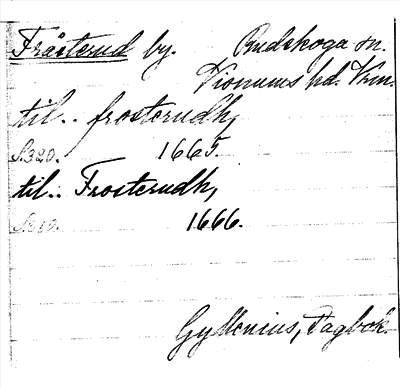 Fråsterud by. Rudskoga sn.
Visnums hd. Vrm.
til.. frosterudh,
S.320. 1665.
til.. Frosterudh,
1666.
Gyllenius, Dagbok.